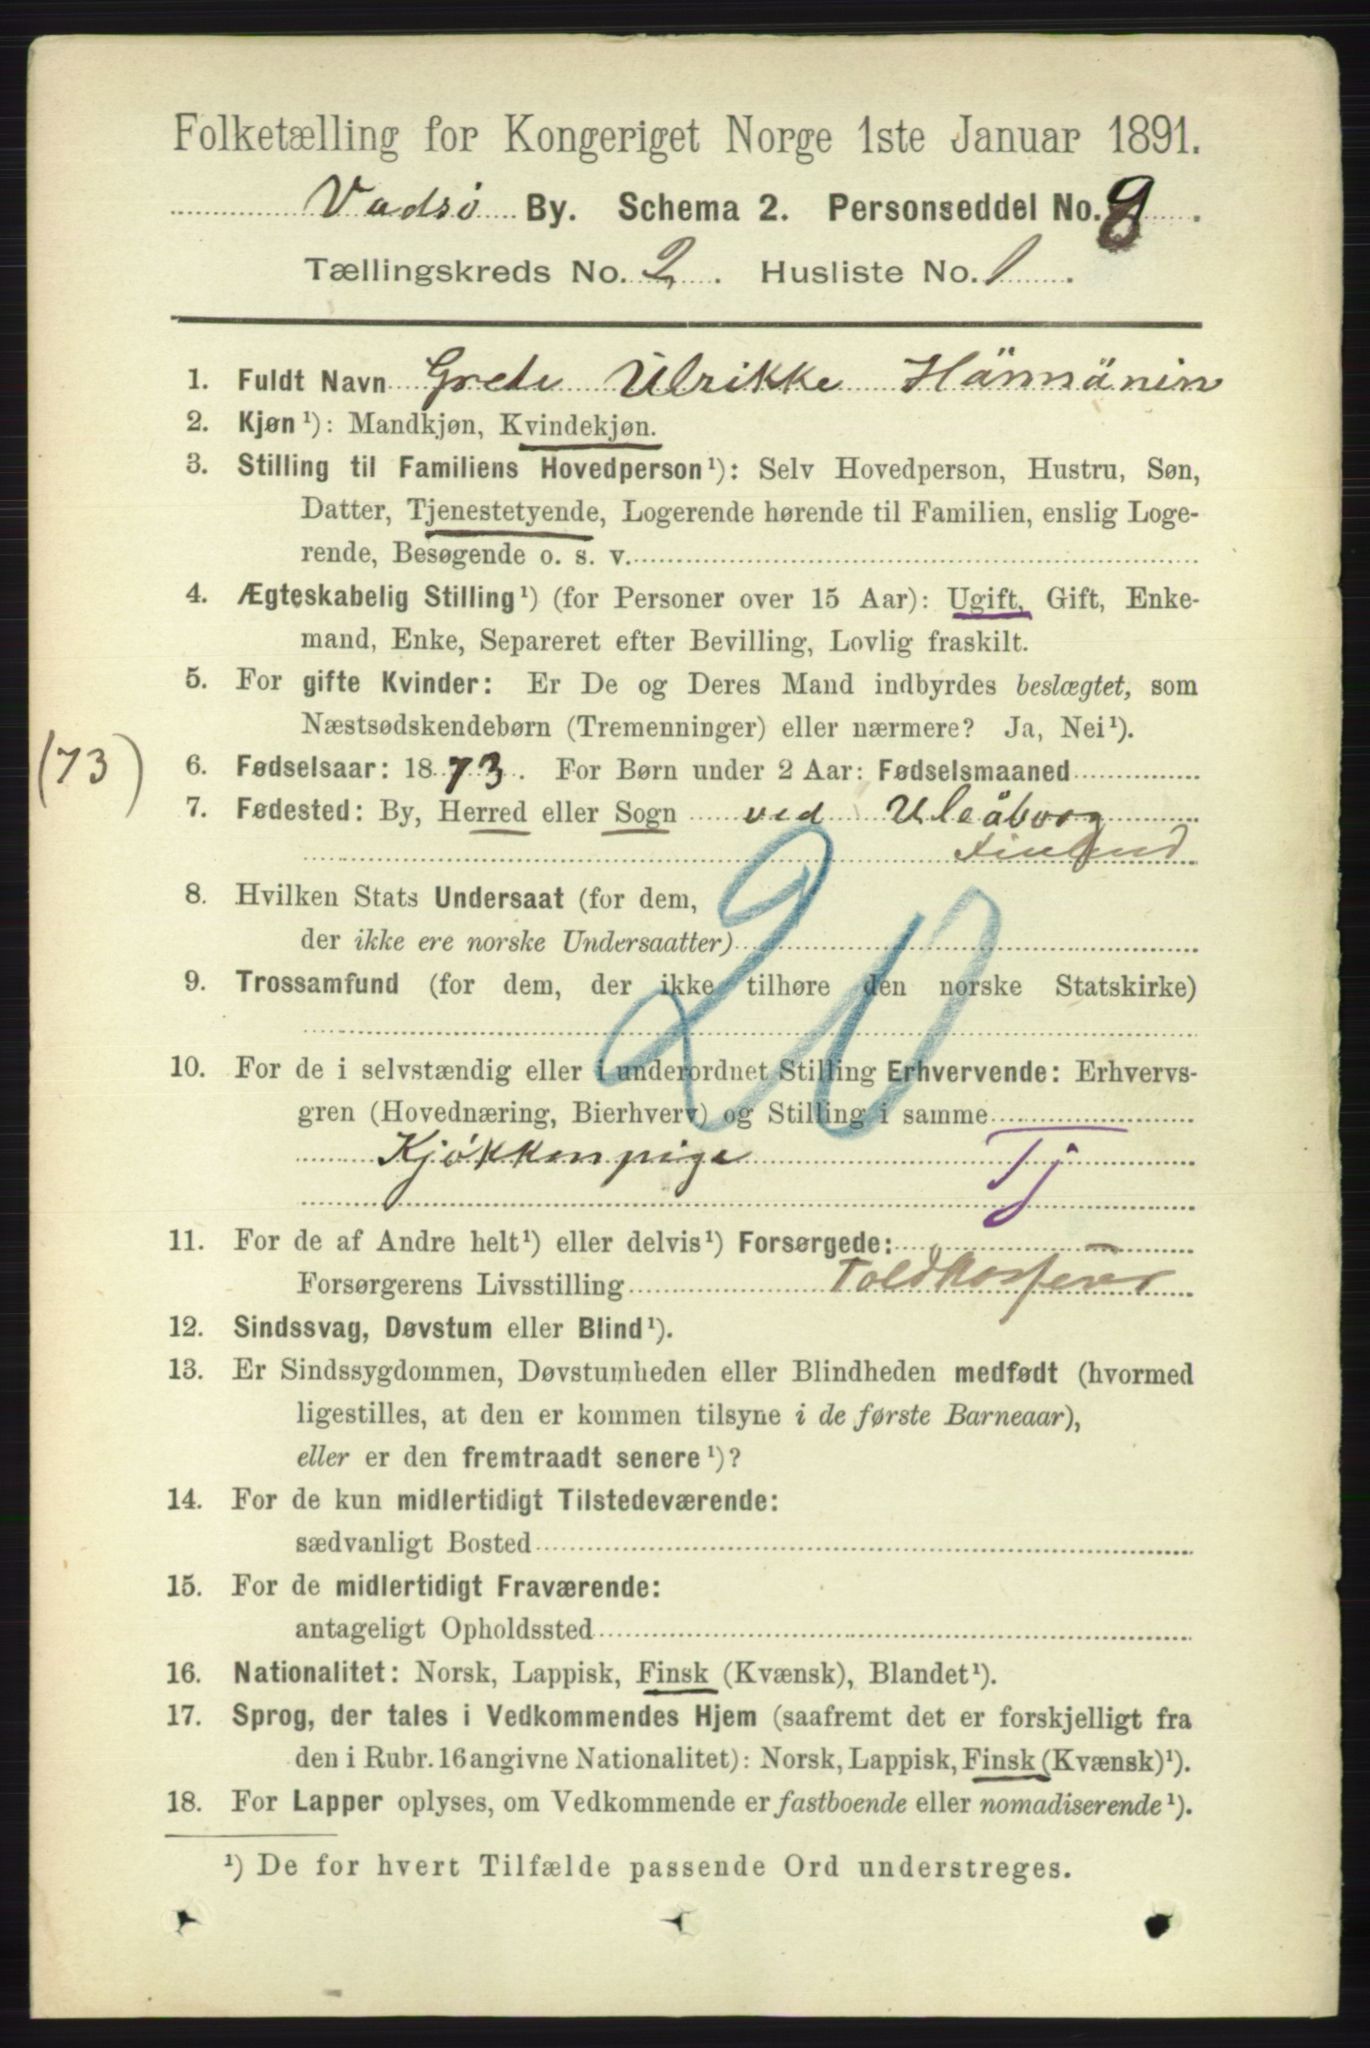 Folketælling for Kongeriget Norge 1ste Januar 1891.
Vadsö By. Schema 2. Personseddel No. 8.
Tællingskreds No. 2. Husliste No. 1.
1. Fuldt Navn Grete Ulrikke Hännänin
2. Kjøn ¹): Mandkjøn, Kvindekjøn.
3. Stilling til Familiens Hovedperson ¹): Selv Hovedperson, Hustru, Søn,
Datter, Tjenestetyende, Logerende hørende til Familien, enslig Loge-
rende, Besøgende o. s. v.
4. Ægteskabelig Stilling ¹) (for Personer over 15 Aar): Ugift, Gift, Enke-
mand, Enke, Separeret efter Bevilling, Lovlig fraskilt.
5. For gifte Kvinder: Er De og Deres Mand indbyrdes beslægtet, som
Næstsødskendebørn (Tremenninger) eller nærmere? Ja, Nei ¹).
(73)
6. Fødselsaar: 1873. For Børn under 2 Aar: Fødselsmaaned
7. Fødested: By, Herred eller Sogn ved Uleåborg
Finland
8. Hvilken Stats Undersaat (for dem,
der ikke ere norske Undersaatter)
9. Trossamfund (for dem, der ikke tilhøre den norske Statskirke)
10. For de i selvstændig eller i underordnet Stilling Erhvervende: Erhvervs-
gren (Hovednæring, Bierhverv) og Stilling i samme
Kjökkenpige Tj
11. For de af Andre helt ¹) eller delvis ¹) Forsørgede:
Forsørgerens Livsstilling Toldkasserer
12. Sindssvag, Døvstum eller Blind ¹).
13. Er Sindssygdommen, Døvstumheden eller Blindheden medfødt (hvormed
ligestilles, at den er kommen tilsyne i de første Barneaar),
eller er den fremtraadt senere ¹)?
14. For de kun midlertidigt Tilstedeværende:
sædvanligt Bosted
15. For de midlertidigt Fraværende:
antageligt Opholdssted
16. Nationalitet: Norsk, Lappisk, Finsk (Kvænsk), Blandet ¹).
17. Sprog, der tales i Vedkommendes Hjem (saafremt det er forskjelligt fra
den i Rubr. 16 angivne Nationalitet): Norsk, Lappisk, Finsk (Kvænsk) ¹).
18. For Lapper oplyses, om Vedkommende er fastboende eller nomadiserende ¹).
¹) De for hvert Tilfælde passende Ord understreges.